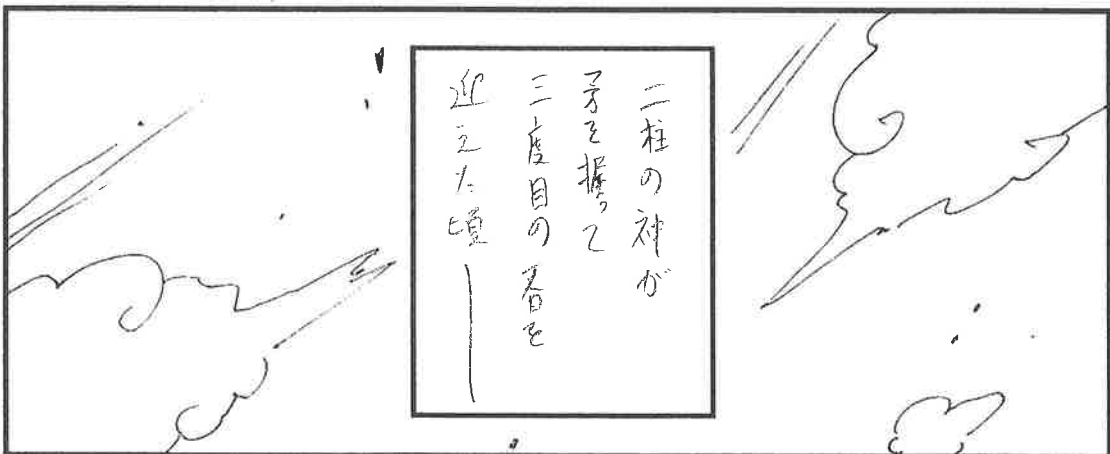 二柱の神が
矛を握って
三度目の春を
迎えた頃——